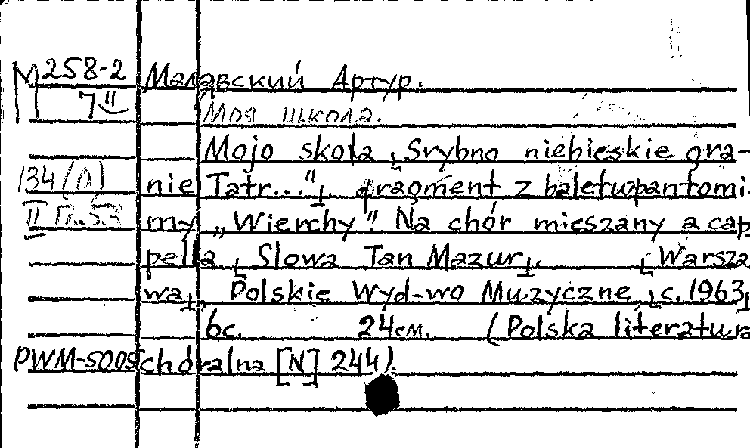 М 258-2 Малавский Артур.
7 II Моя школа.
Mojo skoła „Srybno niebieskie gra-
134(0) nie Tatr..." fragment z baletupantomi-
II my „Wierchy" Na chór mieszany a cap
pella, Slowa Jan Mazur. [Warsza
wa], Polskie Wyd-wo Muzyczne, c. 1963,
6c. 24см. (Polska literatura
PWM-5005 chóralna [N] 244).